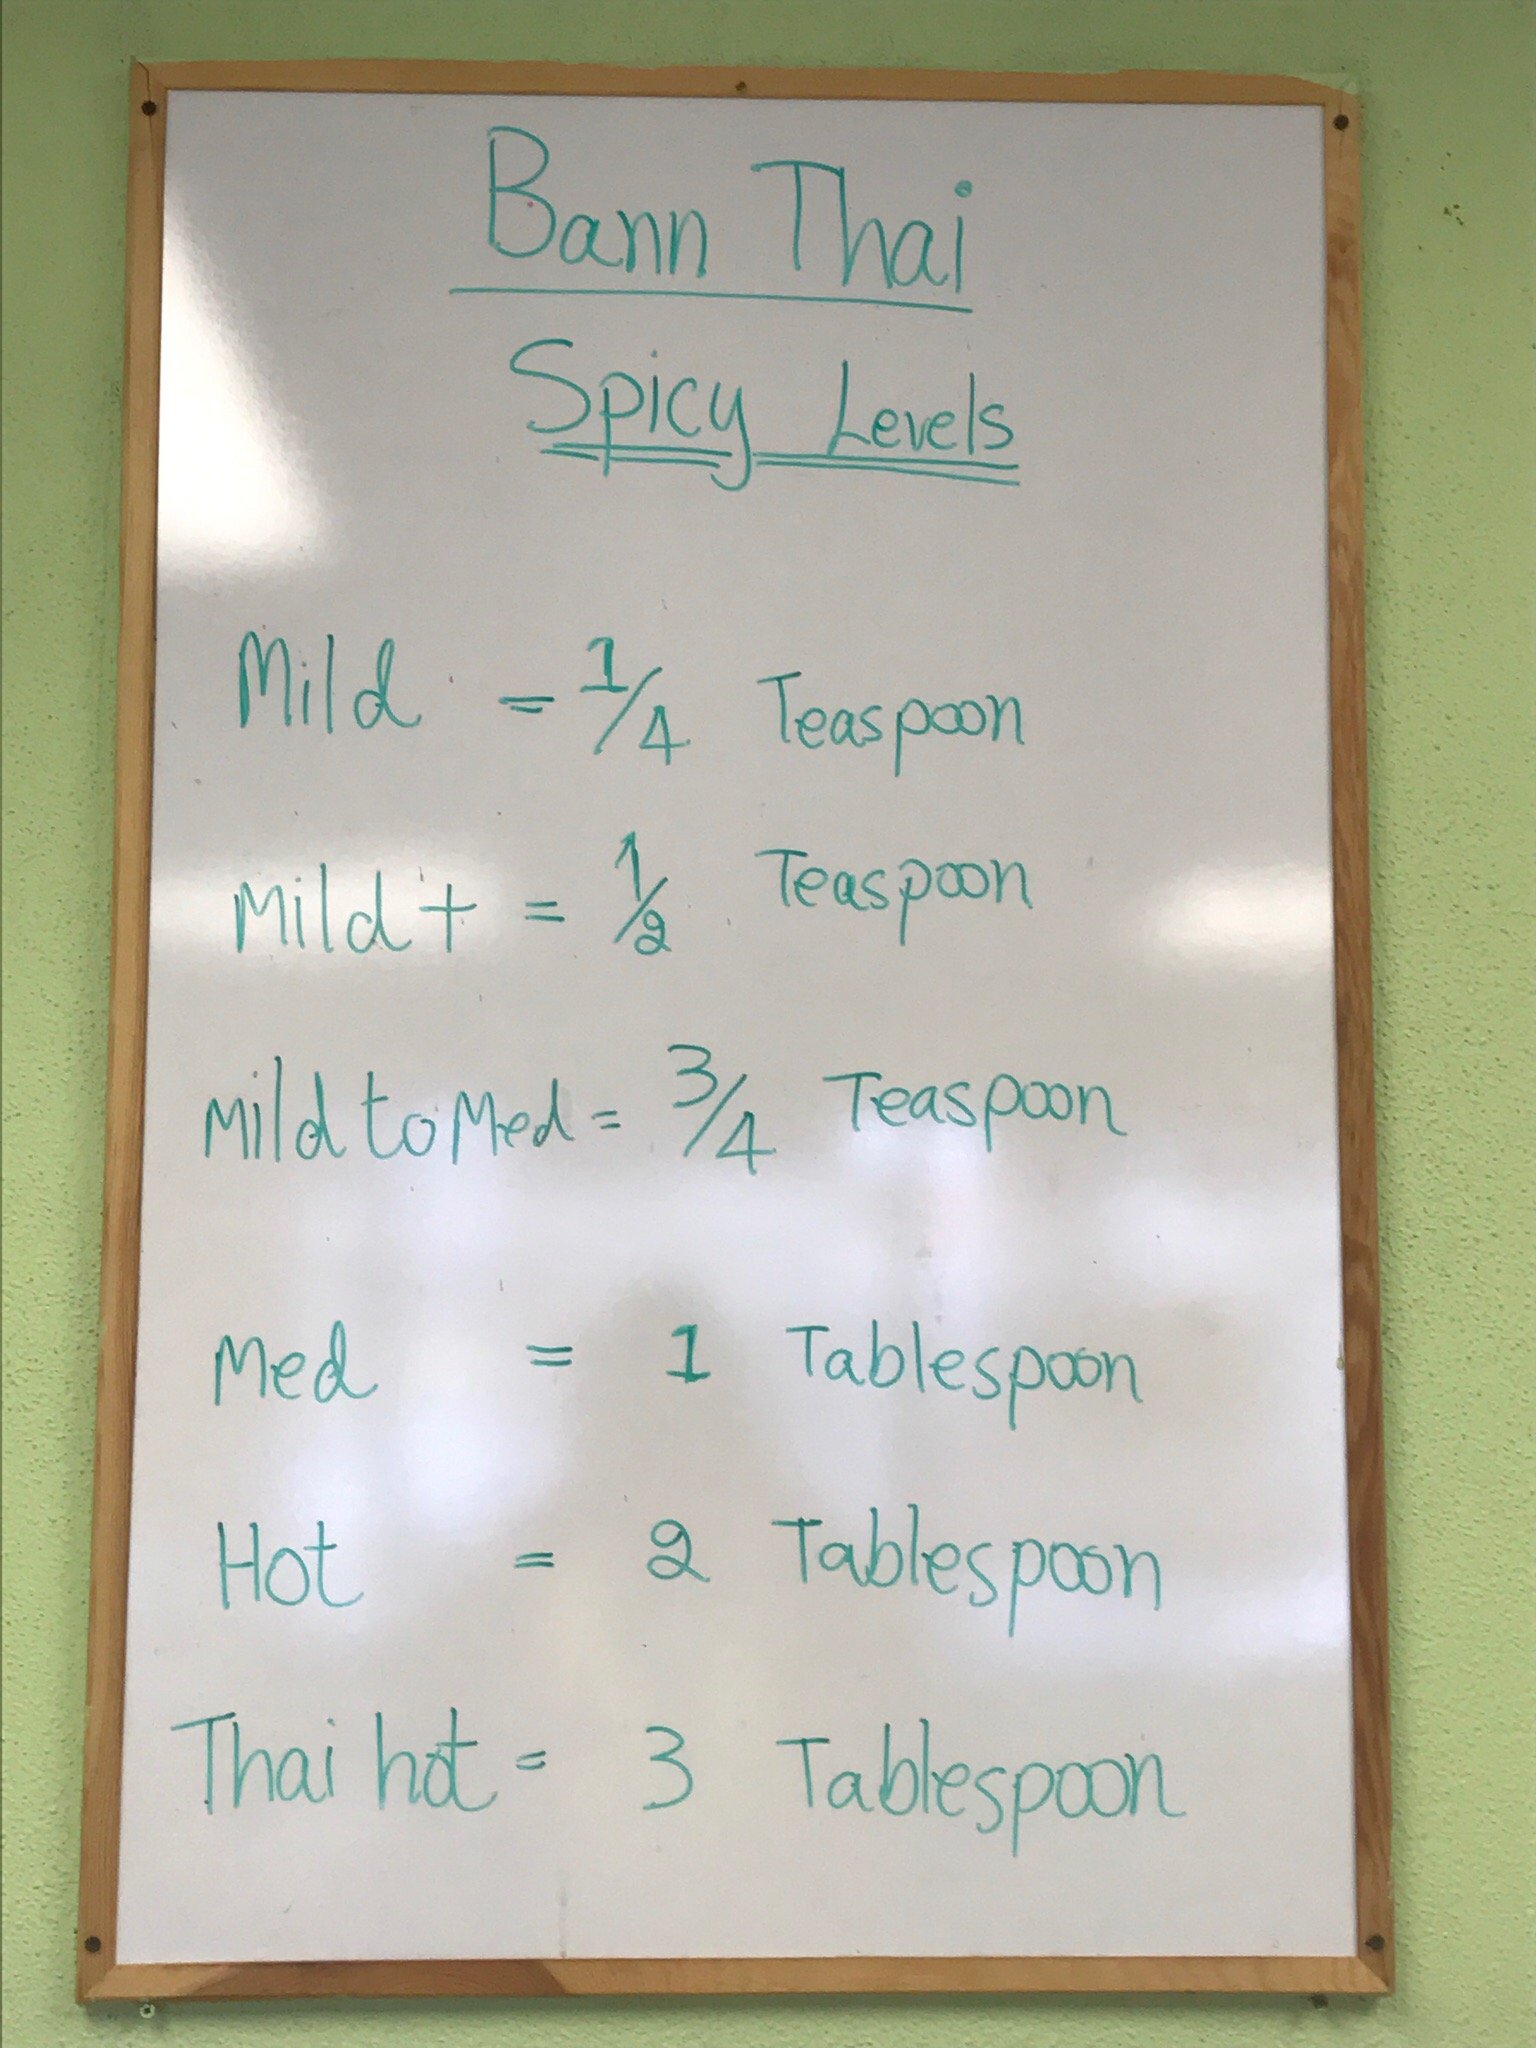 Bann Thai
Spicy Levels
Mild = 1/4 Teaspoon
Mild + = 1/2 Teaspoon
Mild to Med = 3/4 Teaspoon
Med = 1 Tablespoon
Hot = 2 Tablespoon
Thai hot = 3 Tablespoon